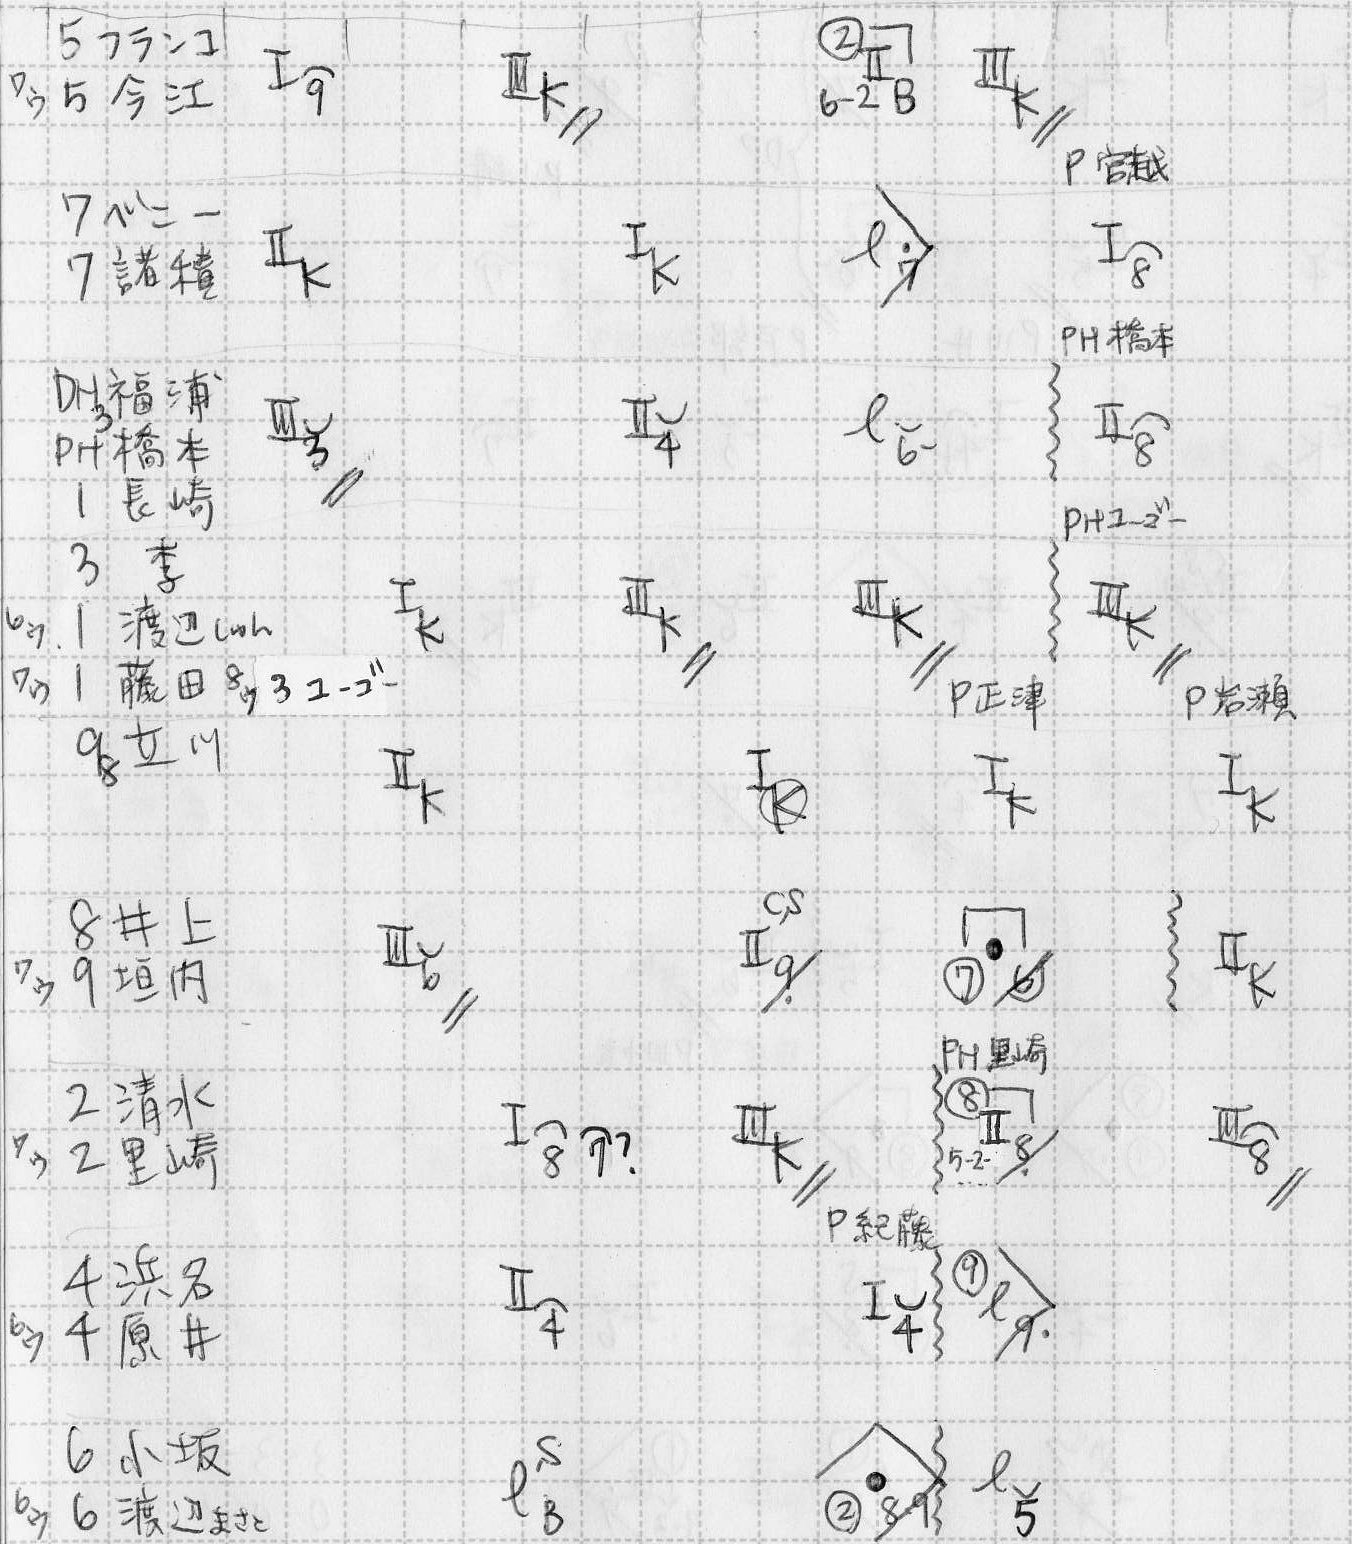 5 フランコ
7ウ 5 今江
I 9
III K //
② II
6-2 B
III K //
P 宮越
7 ベニー
7 諸積
II K
I K
l 7
I 8
PH 橋本
DH 3 福浦
PH 橋本
1 長崎
III 3 //
II 4
l 6-
II 8
PH ユーゴー
3 李
6ウ 1 渡辺しゅん
7ウ 1 藤田 8ウ 3 ユーゴー
I K
III K //
III K //
III K //
P 正津
P 岩瀬
9 8 立川
II K
I K
I K
I K
8 井上
7ウ 9 垣内
III 6 //
CS
II 9
⑦ 6
II K
PH 里崎
2 清水
7ウ 2 里崎
I 8 7?
III K //
⑧ II 8
5-2-
III 8 //
P 紀藤
4 浜名
6ウ 4 原井
II 4
I 4
⑨ l 9
6 小坂
6ウ 6 渡辺まさと
l S B
② 8 9
l 5